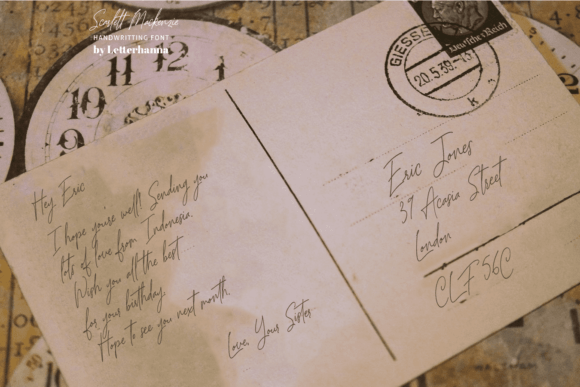 Scarlett Mackenzie
HANDWRITTING FONT
by Letterhanna
12
11
10
9
Deutsches Reich
GIESSE
20.5.39.-13
k
Hey Eric
I hope you're well! Sending you
lots of love from Indonesia.
Wish you all the best
for your birthday.
Hope to see you next month.
Love, Your Sister
Eric Jones
39 Acasia Street
London
CLF 56C